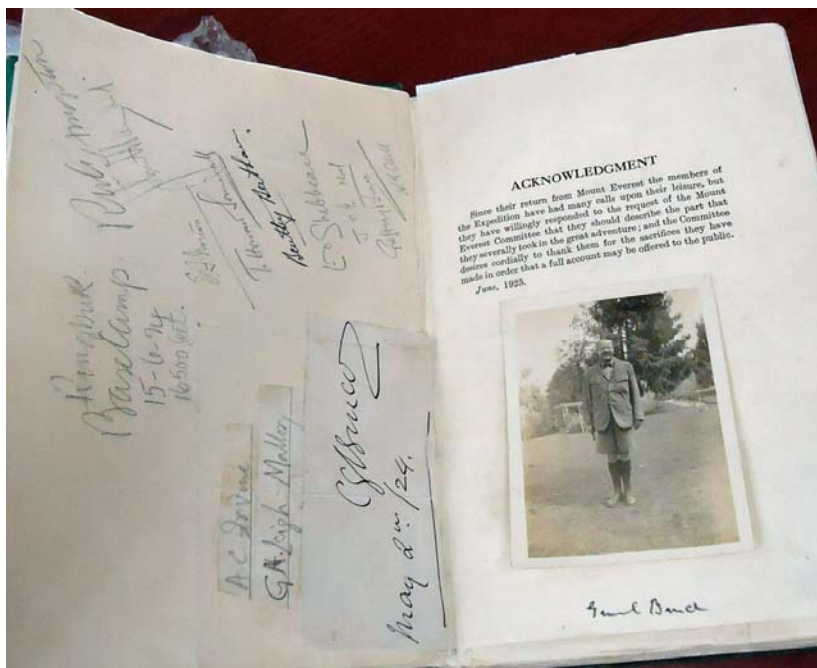 Rongbuk
Base Camp.
15-6-24
16500 feet.
Hingston
E F Norton
T. Howard Somervell
Bentley Beetham.
E O Shebbeare
Noel
Geoffrey Bruce
A C Irvine
G.H. Leigh-Mallory
C G Bruce
May 2nd/24.
ACKNOWLEDGMENT
Since their return from Mount Everest the members of
the Expedition have had many calls upon their leisure, but
they have willingly responded to the request of the Mount
Everest Committee that they should describe the part that
they severally took in the great adventure; and the Committee
desires cordially to thank them for the sacrifices they have
made in order that a full account may be offered to the public.
June, 1925.
Genl Bruce